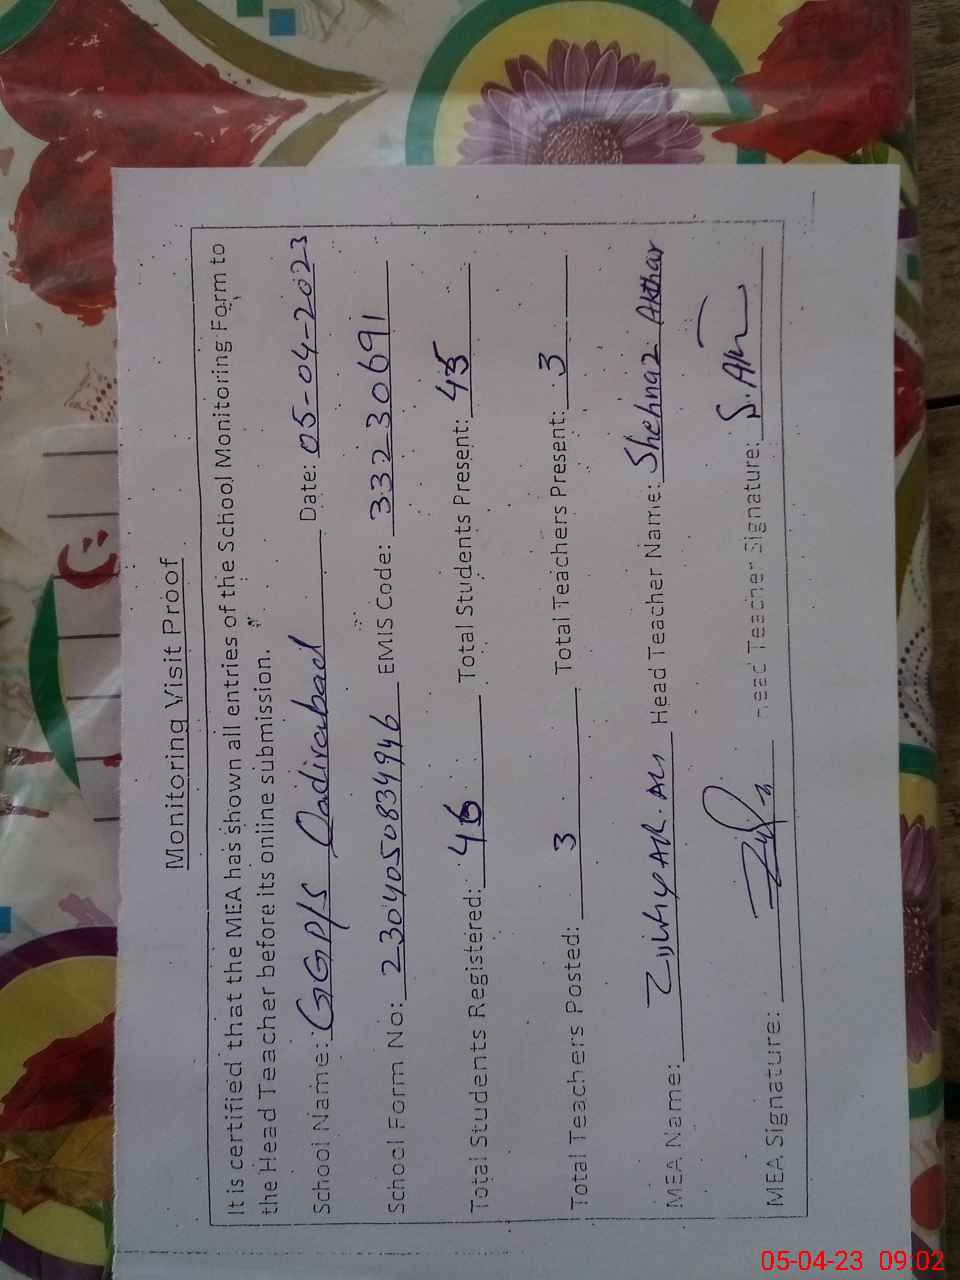 Monitoring Visit Proof
It is certified that the MEA has shown all entries of the School Monitoring Form to
the Head Teacher before its online submission.
School Name: GGP/S Qadirabad Date: 05-04-2023
School Form No: 2304050834946 EMIS Code: 33230691
Total Students Registered: 46 Total Students Present: 45
Total Teachers Posted: 3 Total Teachers Present: 3
MEA Name: Head Teacher Name: Shehnaz Akthar
MEA Signature: Head Teacher Signature: S.
05-04-23 09:02